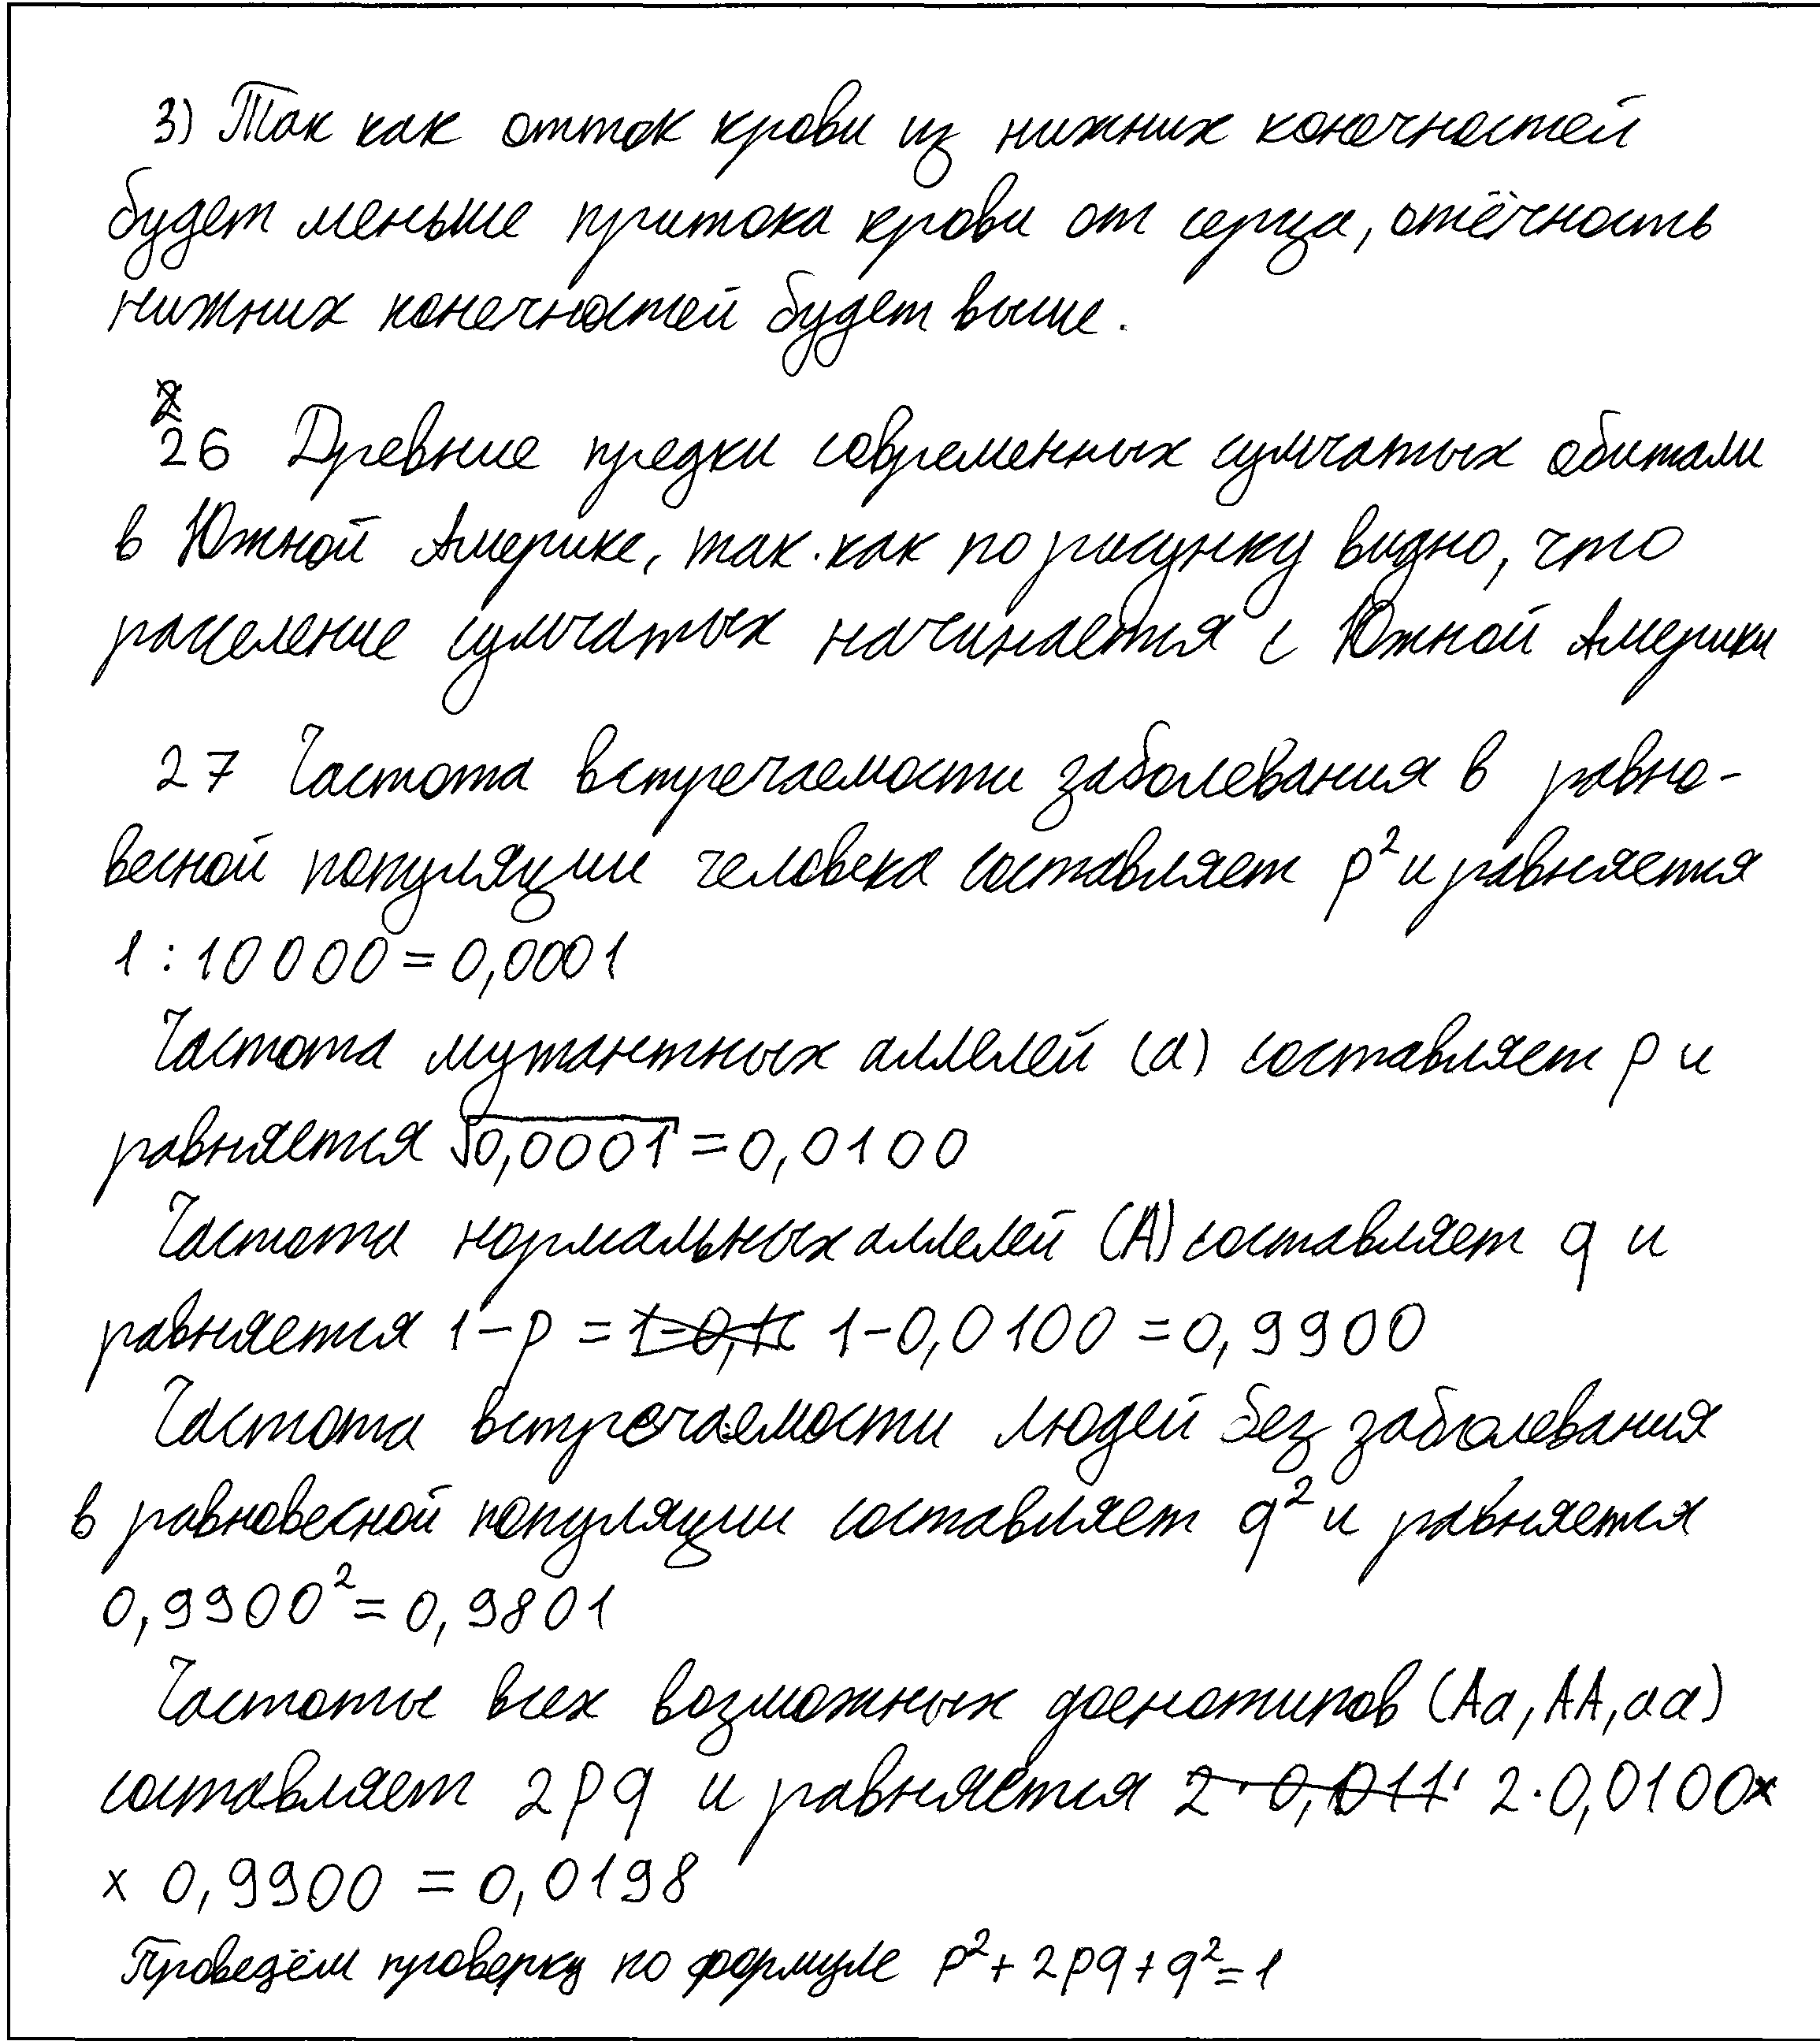 3) Так как отток крови из нижних конечностей
будет меньше притока крови от серца, отёчность
нижних конечностей будет выше.
26 Древние предки современных сумчатых обитали
в Южной Америке, так как по рисунку видно, что
расселение сумчатых начинается с Южной Америки
27 Частота встречаемости заболевания в равно-
весной популяции человека составляет p² и равняется
1 : 10 000 = 0,0001
Частота мутантных аллелей (a) составляет p и
равняется √0,0001 = 0,0100
Частота нормальных аллелей (A) составляет q и
равняется 1 – p = 1 – 0,0100 = 0,9900
Частота встречаемости людей без заболевания
в равновесной популяции составляет q² и равняется
0,9900² = 0,9801
Частоты всех возможных фенотипов (Aa, AA, aa)
составляет 2pq и равняется 2 · 0,0100 ×
× 0,9900 = 0,0198
Проведём проверку по формуле p² + 2pq + q² = 1